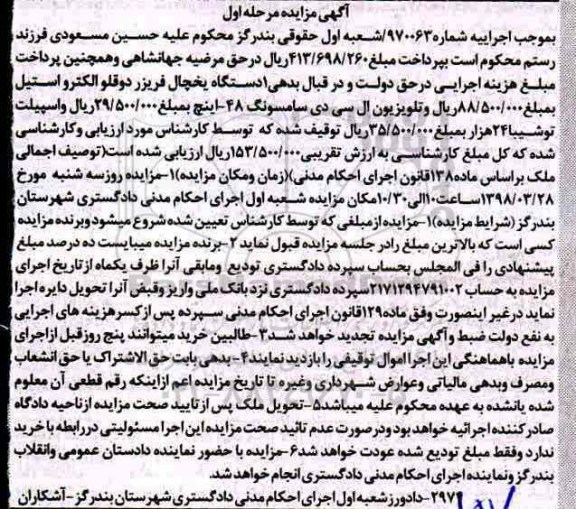 آگهی مزایده مرحله اول
بموجب اجراییه شماره۹۷۰۰۶۳/شعبه اول حقوقی بندرگز محکوم علیه حسین مسعودی فرزند
رستم محکوم است بپرداخت مبلغ۴۱۳/۶۹۸/۲۶۰ریال درحق مرضیه جهانشاهی وهمچنین پرداخت
مبلغ هزینه اجرایی درحق دولت و در قبال بدهی۱دستگاه یخچال فریزر دوقلو الکترو استیل
بمبلغ۸۸/۵۰۰/۰۰۰ریال وتلویزیون ال سی دی سامسونگ ۴۸-اینچ بمبلغ۲۹/۵۰۰/۰۰۰ریال واسپیلت
توشیبا۲۴هزار بمبلغ۳۵/۵۰۰/۰۰۰ریال توقیف شده که توسط کارشناس مورد ارزیابی وکارشناسی
شده که کل مبلغ کارشناسی به ارزش تقریبی۱۵۳/۵۰۰/۰۰۰ریال ارزیابی شده است(توصیف اجمالی
ملک براساس ماده۱۳۸قانون اجرای احکام مدنی)(زمان ومکان مزایده)۱-مزایده روزسه شنبه مورخ
۱۳۹۸/۰۳/۲۸ساعت۱۰الی۱۰/۳۰مکان مزایده شعبه اول اجرای احکام مدنی دادگستری شهرستان
بندرگز (شرایط مزایده)۱-مزایده ازمبلغی که توسط کارشناس تعیین شده شروع میشود وبرنده مزایده
کسی است که بالاترین مبلغ رادر جلسه مزایده قبول نماید ۲-برنده مزایده میبایست ده درصد مبلغ
پیشنهادی را فی المجلس بحساب سپرده دادگستری تودیع ومابقی آنرا ظرف یکماه ازتاریخ اجرای
مزایده به حساب ۲۱۷۱۲۹۴۷۹۱۰۰۲سپرده دادگستری نزد بانک ملی واریز وقبض آنرا تحویل دایره اجرا
نماید درغیر اینصورت وفق ماده۱۲۹قانون اجرای احکام مدنی سپرده پس ازکسرهزینه های اجرایی
به نفع دولت ضبط وآگهی مزایده تجدید خواهد شد۳-طالبین خرید میتوانند پنج روزقبل ازاجرای
مزایده باهماهنگی این اجرا اموال توقیفی را بازدید نمایند۴-بدهی بابت حق الاشتراک یا حق انشعاب
ومصرف وبدهی مالیاتی وعوارض شهرداری وغیره تا تاریخ مزایده اعم ازاینکه رقم قطعی آن معلوم
شده یانشده به عهده محکوم علیه میباشد۵-تحویل ملک پس از تایید صحت مزایده ازناحیه دادگاه
صادرکننده اجرائیه خواهد بود ودرصورت عدم تائید صحت مزایده این اجرا مسئولیتی دررابطه با خرید
ندارد وفقط مبلغ تودیع شده عودت خواهد شد۶-مزایده با حضور نماینده دادستان عمومی وانقلاب
بندرگز ونماینده اجرای احکام مدنی دادگستری انجام خواهد شد.
-دادورزشعبه اول اجرای احکام مدنی دادگستری شهرستان بندرگز -آشکاران